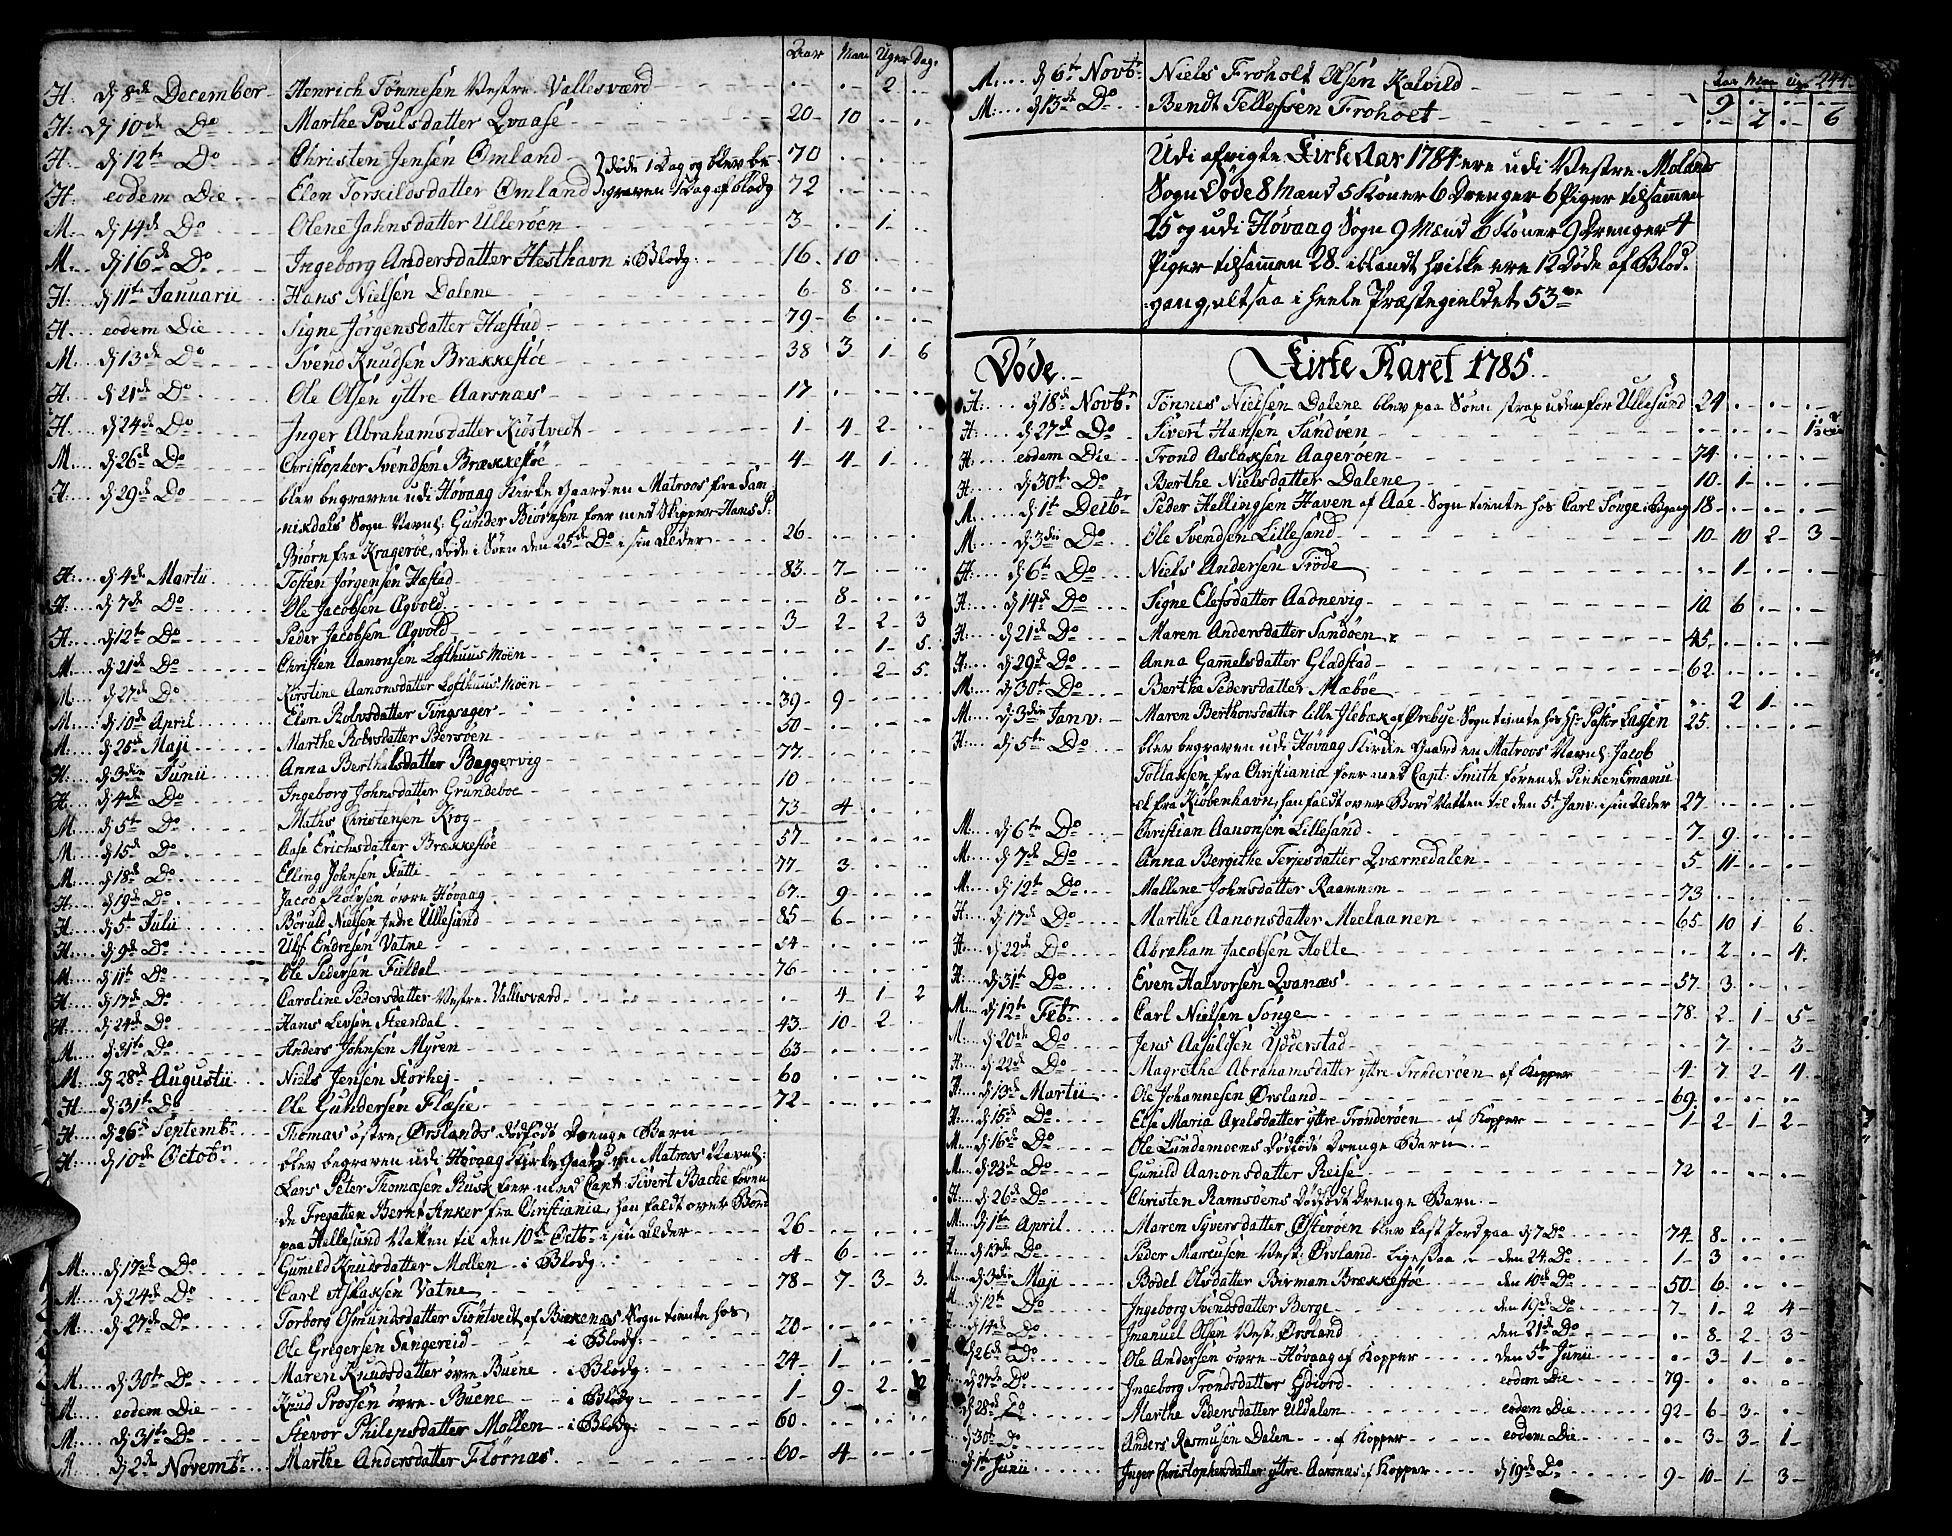 Aar Maan Uger Dag.
H. dj 8de December Henrich Tönnesen Vestre Vallesværd .. .. 2 ..
H: Dj 10de Do Marthe Poulsdatter Qvaase 20 10 .. ..
H. dj 12te Do Christen Jensen Omland } døde 1 Dag og blev be 70
H. eodem Die Elen Torkildsdatter Omland } graven 1 Dag af blodg 72
M. dj 14de Do Olene Jahnsdatter Ulleröen 3 .. 1 ..
M. dj 16de Do Ingeborg Andersdatter Hesthavn i Blodg: 16 10
H. dj 11te Januarii Hans Nielsen Dalene 6 8
H. eodem Die Signe Jörgensdatter Hæstad 79 6
M. dj 13de Do Svend Knudsen Brækkestöe 38 3 1 6
H. dj 21de Do Ole Olsen yttre Aarsnæs 17
H. dj 24de Do Inger Abrahamsdatter Kiöstvedt 1 4 2
M. dj 26de Do Christopher Svendsen Brækkestöe 4 4 1
H. dj 29de Do blev begraven udi Høvaag Kirke Gaard en Matroos fra San
nikdals Sogn Navnl: Gunder Biörnsen foer med Skipper Hans P:
Biörn fra Kragerøe, døde i Söen den 25de Do i sin Alder 26
H. dj 4de Martii Tosten Jörgensen Hæstad 83 7
H. dj 7de Do Ole Jacobsen Ägvold .. 8
H. dj 12te Do Peder Jacobsen Ägvold 3 2 2 3
M. dj 21de Do Christen Aanonsen Lofthuus Moën .. .. 1 5
M. dj 27de Do Kirstine Aanonsdatter Lofthuus Moën .. .. 2 5
M. dj 10de April Elen Rolvsdatter Tingsager 39 9
M. dj 25de Maji Marthe Rolvsdatter Bersöen 50
H. dj 3die Junii Anna Berthelsdatter Beggervig 77
H. dj 4de Do Ingeborg Johnsdatter Grundeboe 10
M. dj 5te Do Mathis Christensen Krog 73 4
M. dj 15de Do Aase Erichsdatter Brækkestöe 57
M. dj 18de Do Elling Johnsen Stutti 77 3
H. dj 19de Do Jacob Rolvsen övre Høvaag 67 9
H. dj 5te Julii Böruld Nielsen Indre Ullesund 85 6
H. dj 9de Do Ulf Endresen Vatne 54
M. dj 11te Do Ole Pedersen Fuldal 76
H. dj 17de Do Caroline Pedersdatter Vestre Vallesværd .. 4 1 2
H. dj 24de Do Hans Levsen Steendal 43 10 2
M. dj 31te Do Anders Johnsen Myren 63
M. dj 28de Augustii Niels Jensen Storhej 60
H. dj 31te Do Ole Gundersen Flæsie 72
H. dj 26de Septembr Thomas östre Ørslands dödfødt Drenge Barn
H. dj 10de Octobr blev begraven udi Høvaag Kirke Gaard en Matroos Navnl:
Lars Peter Thomæsen Rusk foer med Capt: Sivert Backe føren
de Fregatten Bernt Anker fra Christiania, han faldt over Bord
paa Hellesund Natten til den 10de Octbr i sin Alder 26
M. dj 17de Do Gunild Knudsdatter Mollen i Blodg: 4 6
M. dj 24de Do Carl Aslaksen Vatne 78 7 3 3
M. dj 27de Do Torborg Osmundsdatter Tiöntvedt af Birkenæs Sogn tiente hos
Ole Gregersen Sangereid i Blodg: 20
M. dj 30te Do Maren Knudsdatter övre Buene i Blodg: 24 1
M. eodem Die Knud Prossen övre Buene i Blodg: 1 9 2 2
M. dj 31te Do Stevor Philepsdatter Mollen i Blodg: 60
H. dj 2de Novembr Marthe Andersdatter Flörnæs 60 4
Aar Maan Ug 244.
M. dj 6te Novbr Niels Froholt Olsen Kalvild 9
M. dj 13de Do Bendt Tellefsen Froholt .. 2 .. 6
Udi afvigte Kirke Aar 1784 ere udi Vestre Molands
Sogn Døde 8 Mænd 5 Koner 6 Drenger 6 Piger tilsammen
25 og udi Høvaag Sogn 9 Mænd 6 Koner 9 Drenger 4
Piger tilsammen 28. iblandt hvilke ere 12 Døde af Blod.
gang, altsaa i heele Præstegieldet 53
Døde Kirke Aaret 1785
H. dj 18de Novbr Tönnes Nielsen Dalene blev paa Söen strax uden for Ullesund 24
H. dj 27de Do Sivert Hansen Sandven
H. eodem Die Trond Aslaksen Aageröen 74
H. dj 30te Do Berthe Nielsdatter Dalene 10 1
M. dj 1te Decbr Peder Hellingsen Haven af Aae Sogn tiente hos Carl Songe i Blodgang 18
M. dj 3die Do Ole Svendsen Lillesand 10 10 2 3
H. dj 6te Do Niels Andersen Tröde .. 1
H. dj 14de Do Signe Elefsdatter Aadnevig 10 6
H. dj 21de Do Maren Andersdatter Sandöen 45
H. dj 29de Do Anna Gammelsdatter Gladstad 62
M. dj 30te Do Berthe Pedersdatter Mæböe .. 2 1
M. dj 3die Janv: Maren Berthovsdatter Lille Ilebæk af Ørebye Sogn tiente hos Hr: Pastor Lassen 25
H. dj 5te Do blev begraven udi Høvaag Kirke Gaard en Matroos Navnl: Jacob
Tollaksen fra Christiania foer med Capt: Smith førende Pinken Emanu
el fra Kiöbenhavn, han faldt over Bord Natten til den 5te Janv: i sin Alder 27
M. dj 6te Do Christian Aanonsen Lillesand 7 9
M. dj 7de Do Anna Bergithe Terjesdatter Qværnedalen 5 11
M. dj 12te Do Mallene Johnsdatter Raannen 73
H. dj 17de Do Marthe Aanonsdatter Meelaanen 65 10 1 6
H. dj 22de Do Abraham Jacobsen Holte .. 2 .. 4
H. dj 31te Do Even Halvorsen Qvanæs 57 3
M. dj 12te Febr Carl Nielsen Songe 78 2 1 5
M. dj 20de Do Jens Aasulsen Ydderstad .. 7 .. 3
H. dj 22de Do Magrethe Abrahamsdatter yttre Tronderöen af Kopper 4 7 2 4
H. dj 13de Martii Ole Johannesen Ørsland 69
H. dj 15de Do Else Maria Axelsdatter yttre Tronderöen af Kopper 1 2 1 2
M. dj 16de Do Ole Lundemoens Dödföde Drenge Barn
M. dj 23de Do Gunild Aanonsdatter Reise 72
H. dj 26de Do Christen Ramsöens Dödfödt Drenge Barn
M. dj 1te April Maren Syversdatter Österöen blev kast Jord paa dj 7 Do 74 8
H. dj 13de Do Peder Marcusen Vest: Ørsland Ligesaa den 24. Do 1 3
M. dj 3die Maji Bodel Olsdatter Birman Brækkestöe den 10de Do 50 6
M. dj 12te Do Ingeborg Svendsdatter Berge den 19de Do 7 1 2 4
H. dj 14de Do Imanuel Olsen Vest: Ørsland den 21de Do .. 8 2 3
dj 26de Do Ole Andersen övre Høvaag af Kopper den 5te Junii .. 3 1
dj 27de Do Ingeborg Trondsdatter Eidiord eodem Die 79
dj 28de Do Marthe Pedersdatter Uldalen eodem Die 92 6 3
dj 30te Do Anders Rasmusen Dalen af Kopper eodem Die .. 3 3 1
dj 1te Junii Inger Christophersdatter yttre Aarsnæs af Kopper dj 19de Do 9 10 1 3